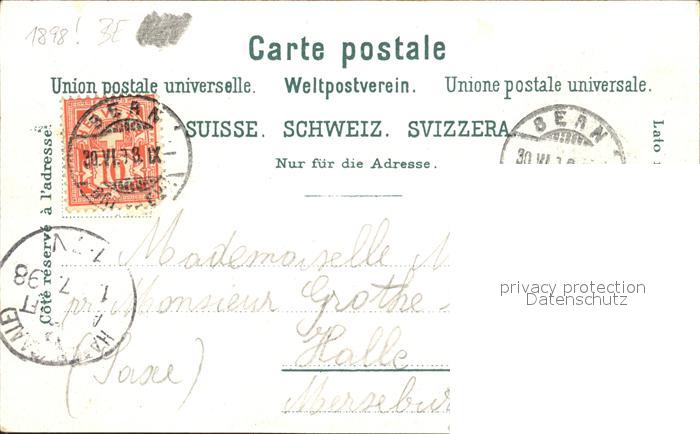 1898! BE
Carte postale
Union postale universelle. Weltpostverein. Unione postale universale.
SUISSE. SCHWEIZ. SVIZZERA
Nur für die Adresse.
Côté réservé à l'adresse.
Lato
BERN
30.VI.
IX
10
BERN
30.VI.
Mademoiselle M
pr Monsieur Grothe
Halle
(Saxe)
Mersebur
HA
1
7
98
privacy protection
Datenschutz